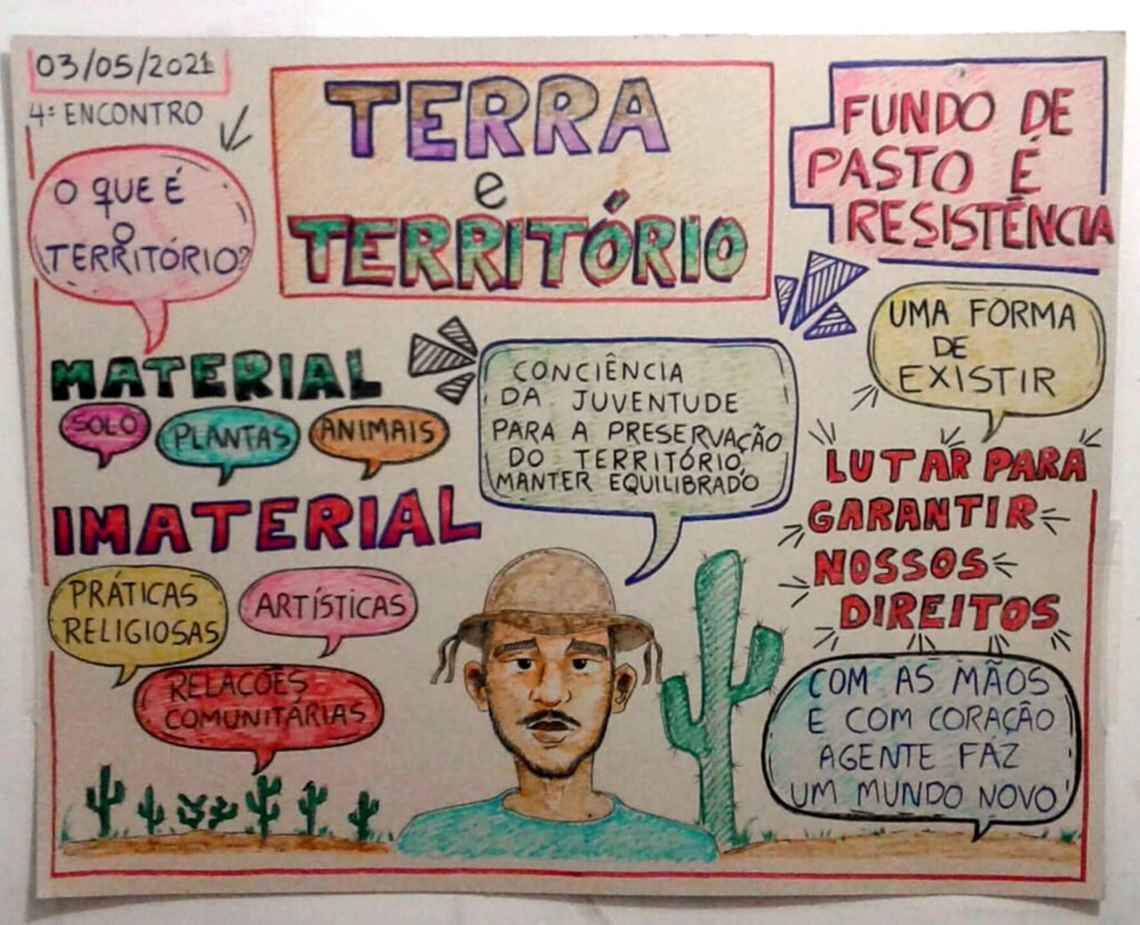 03/05/2021
4º ENCONTRO
O QUE É
O
TERRITÓRIO?
TERRA
e
TERRITÓRIO
FUNDO DE
PASTO É
RESISTÊNCIA
UMA FORMA
DE
EXISTIR
MATERIAL
SOLO
PLANTAS
ANIMAIS
IMATERIAL
PRÁTICAS
RELIGIOSAS
ARTÍSTICAS
RELACÕES
COMUNITÁRIAS
CONCIÊNCIA
DA JUVENTUDE
PARA A PRESERVAÇÃO
DO TERRITÓRIO,
MANTER EQUILIBRADO
LUTAR PARA
GARANTIR
NOSSOS
DIREITOS
COM AS MÃOS
E COM CORAÇÃO
AGENTE FAZ
UM MUNDO NOVO